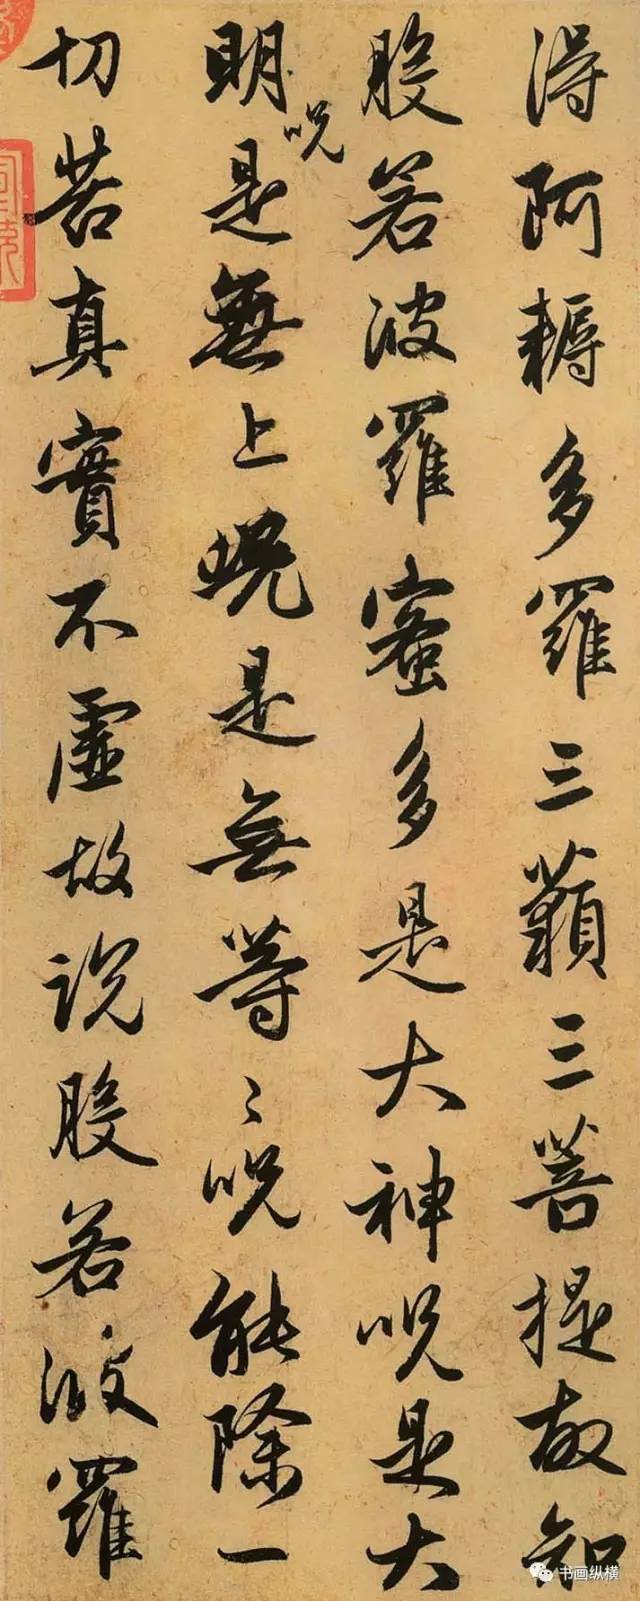 得阿耨多羅三藐三菩提故知
般若波羅蜜多是大神咒是大
明咒是無上咒是無等〻咒能除一
切苦真實不虛故說般若波羅
书画纵横